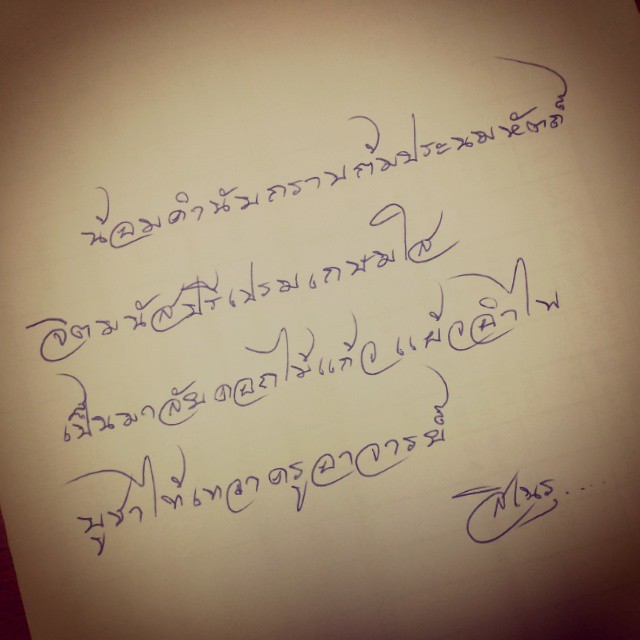 น้อมคำนับกราบก้มประนมหัตถ์
จิตมนัสปรีเปรมเกษมใส
เป็นมาลัยดอกไม้แก้วแพ้วอำไพ
บูชาไท้เทวาครูอาจารย์
สิเนรุ....